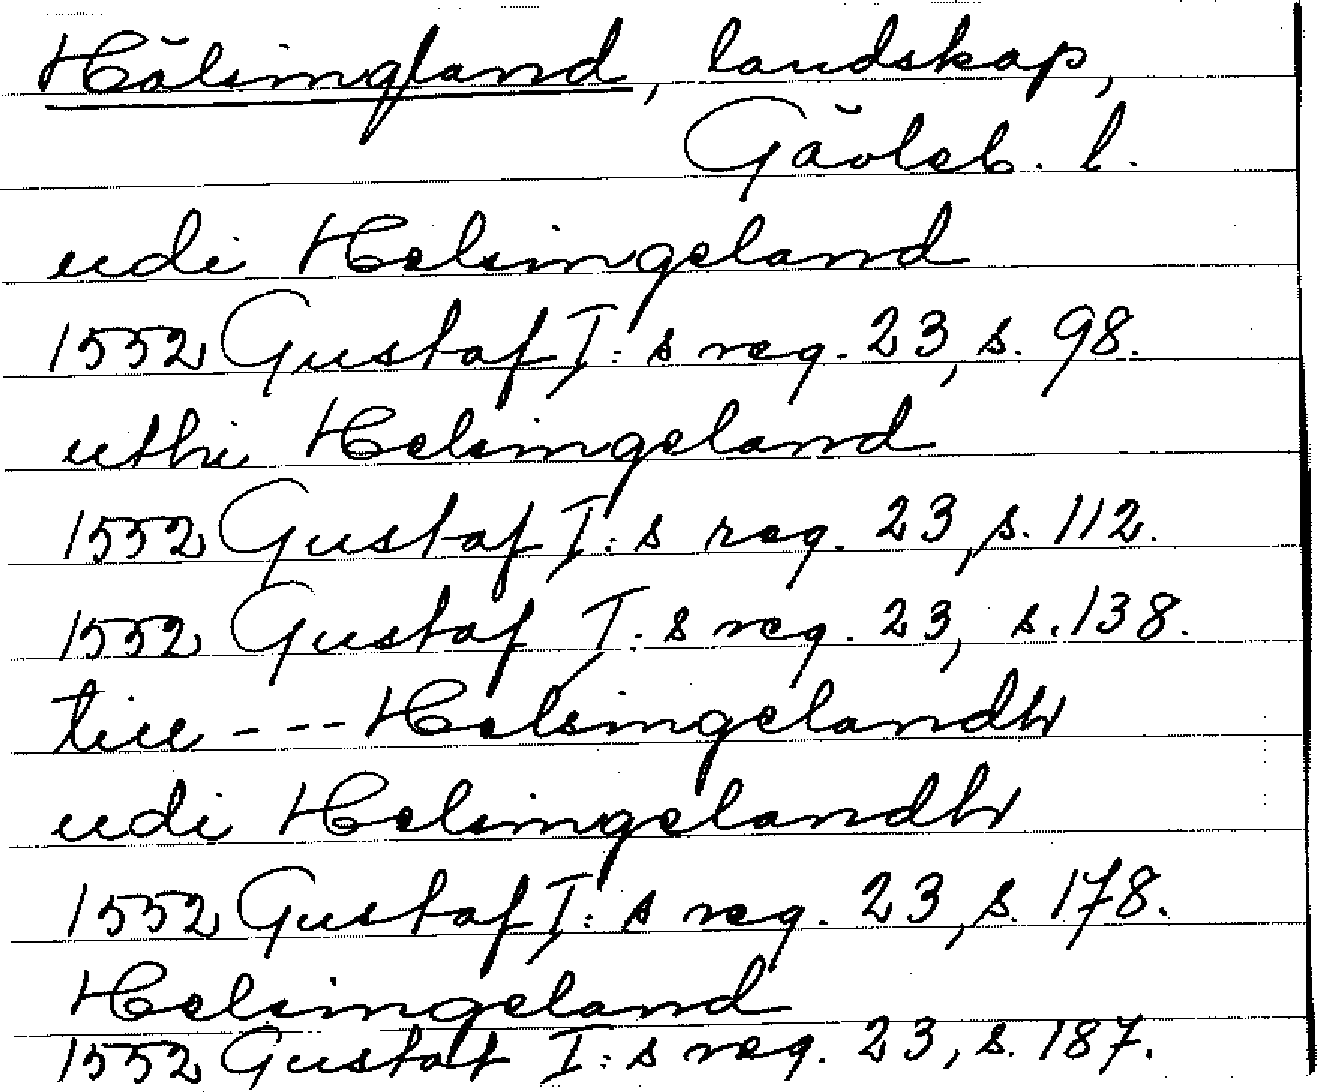 Hälsingland, landskap,
Gävleb. l.
udi Helsingeland
1552 Gustaf I:s reg. 23, s. 98.
uthi Helsingeland
1552 Gustaf I:s reg. 23, s. 112.
1552 Gustaf I:s reg. 23, s. 138.
till --- Helsingelandh
udi Helsingelandh
1552 Gustaf I:s reg. 23, s. 178.
Helsingeland
1552 Gustaf I:s reg. 23, s. 187.